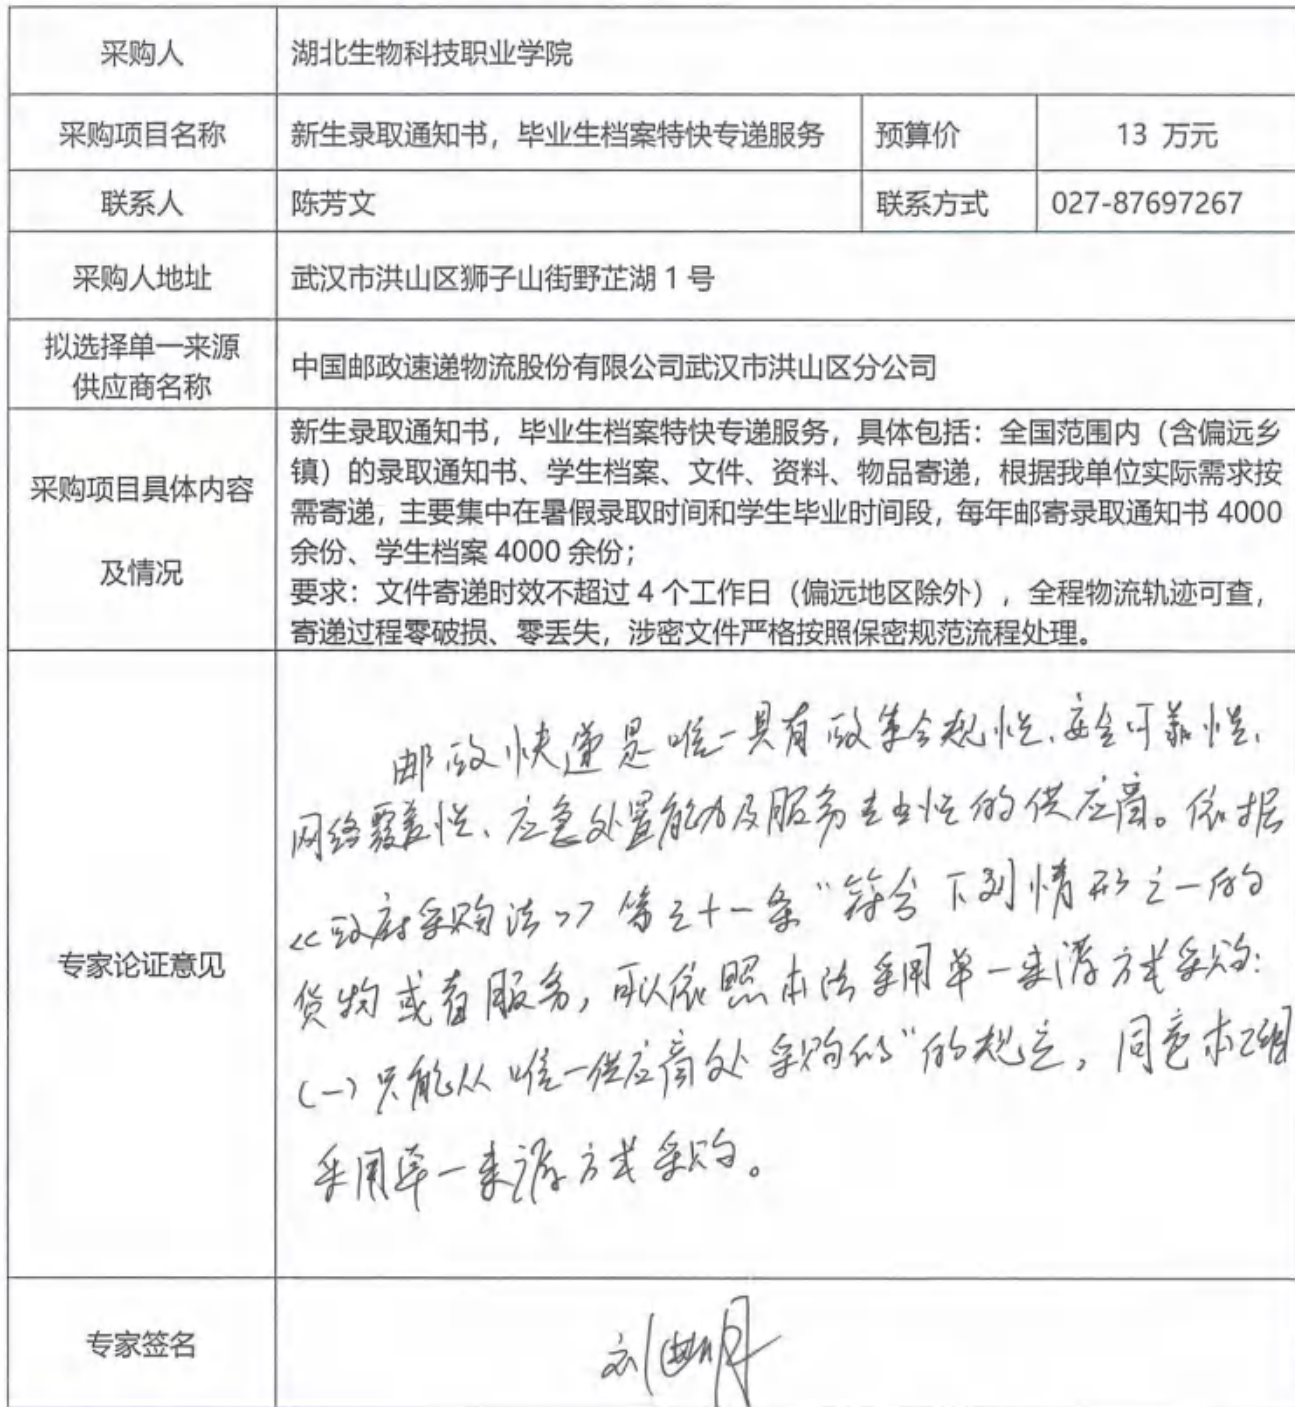 采购人 湖北生物科技职业学院
采购项目名称 新生录取通知书，毕业生档案特快专递服务 预算价 13 万元
联系人 陈芳文 联系方式 027-87697267
采购人地址 武汉市洪山区狮子山街野芷湖 1 号
拟选择单一来源
供应商名称
中国邮政速递物流股份有限公司武汉市洪山区分公司
采购项目具体内容
及情况
新生录取通知书，毕业生档案特快专递服务，具体包括：全国范围内（含偏远乡
镇）的录取通知书、学生档案、文件、资料、物品寄递，根据我单位实际需求按
需寄递，主要集中在暑假录取时间和学生毕业时间段，每年邮寄录取通知书 4000
余份、学生档案 4000 余份；
要求：文件寄递时效不超过 4 个工作日（偏远地区除外），全程物流轨迹可查，
寄递过程零破损、零丢失，涉密文件严格按照保密规范流程处理。
专家论证意见
邮政快递是唯一具有政策合规性、安全可靠性、
网络覆盖性、应急处置能力及服务专业性的供应商。依据
《政府采购法》第三十一条“符合下列情形之一的
货物或者服务，可以依照本法采用单一来源方式采购：
（一）只能从唯一供应商处采购的”的规定，同意本项目
采用单一来源方式采购。
专家签名 刘